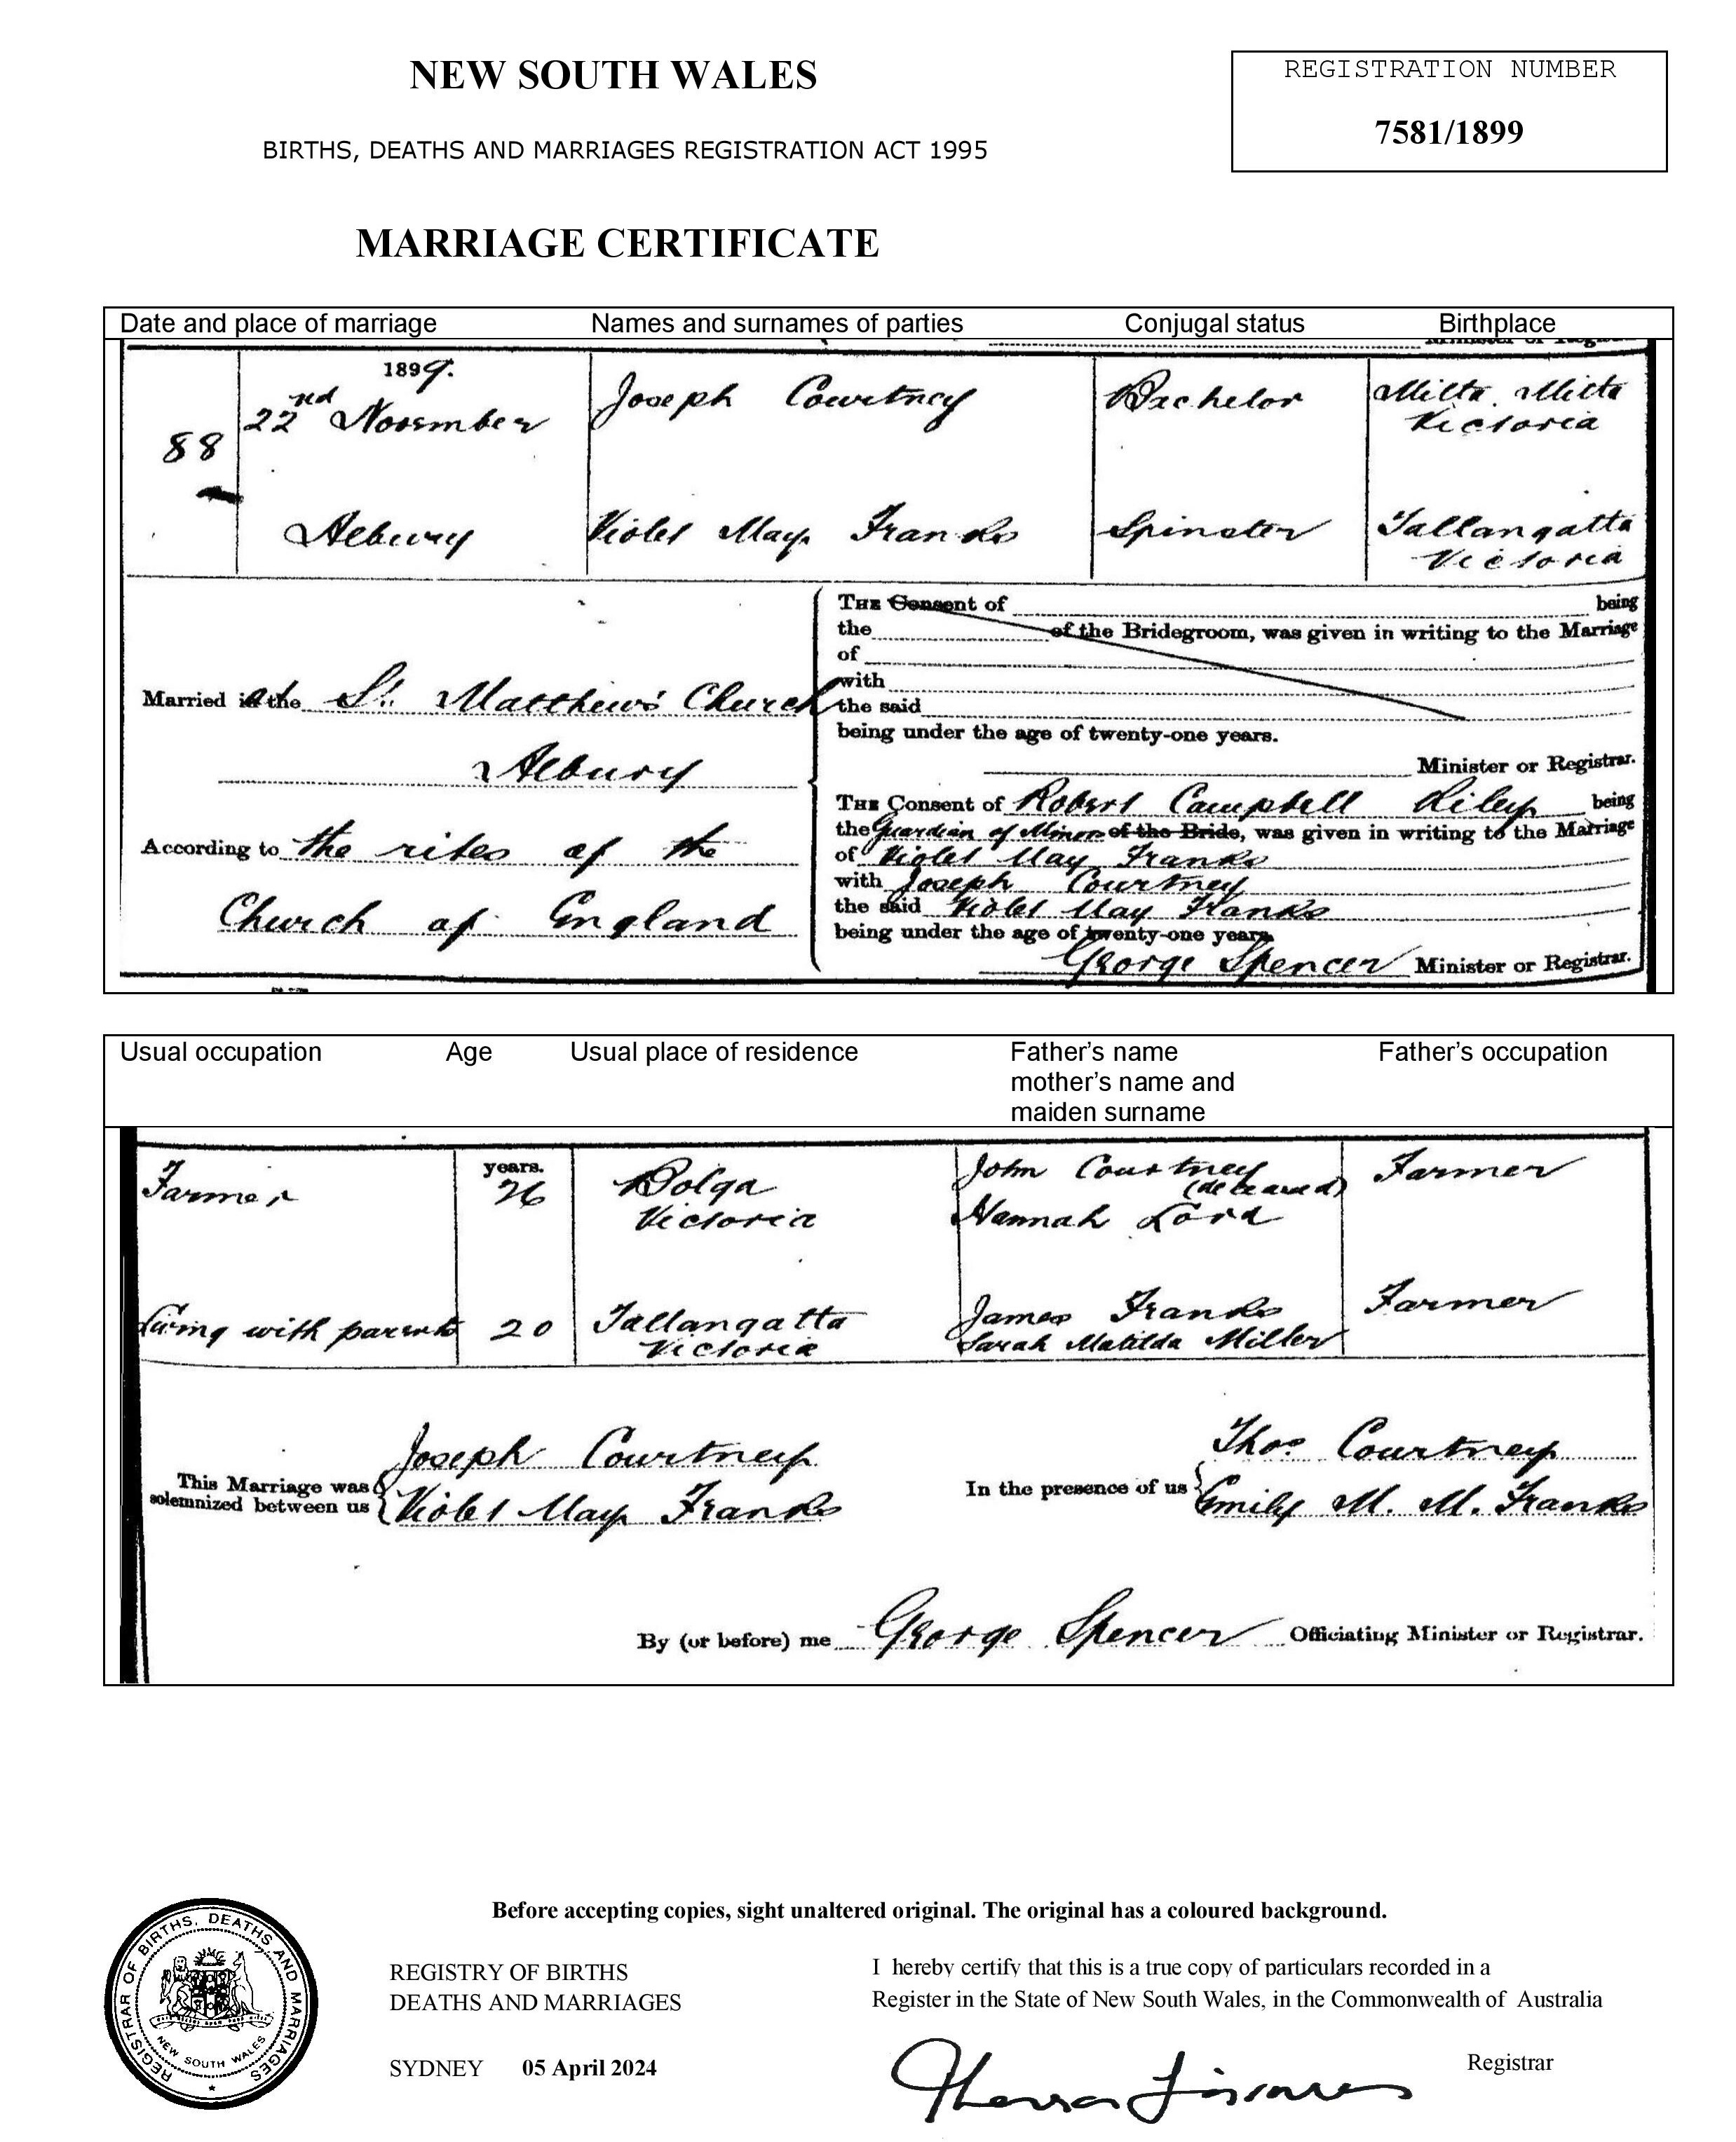 NEW SOUTH WALES
REGISTRATION NUMBER
7581/1899
BIRTHS, DEATHS AND MARRIAGES REGISTRATION ACT 1995
MARRIAGE CERTIFICATE
Date and place of marriage Names and surnames of parties Conjugal status Birthplace
1899.
22nd November Joseph Courtney Bachelor Mitta Mitta
Victoria
88
Albury Violet May Franks Spinster Tallangatta
Victoria
THE Consent of being
the of the Bridegroom, was given in writing to the Marriage
of
with
Married at the St. Matthew's Church the said
being under the age of twenty-one years.
Albury Minister or Registrar.
THE Consent of Robert Campbell Riley being
the Guardian of Minors of the Bride, was given in writing to the Marriage
According to the rites of the of Violet May Franks
with Joseph Courtney
Church of England the said Violet May Franks
being under the age of twenty-one years
George Spencer Minister or Registrar.
Usual occupation Age Usual place of residence Father's name Father's occupation
mother's name and
maiden surname
years.
Farmer 26 Bolga John Courtney Farmer
(deceased)
Victoria Hannah Lord
Living with parents 20 Tallangatta James Franks Farmer
Victoria Sarah Matilda Miller
This Marriage was solemnized between us Joseph Courtney In the presence of us Thos Courtney
Violet May Franks Emily M. M. Franks
By (or before) me George Spencer Officiating Minister or Registrar.
Before accepting copies, sight unaltered original. The original has a coloured background.
REGISTRAR OF BIRTHS, DEATHS AND MARRIAGES
NEW SOUTH WALES
REGISTRY OF BIRTHS
DEATHS AND MARRIAGES
I hereby certify that this is a true copy of particulars recorded in a
Register in the State of New South Wales, in the Commonwealth of Australia
SYDNEY 05 April 2024
Registrar